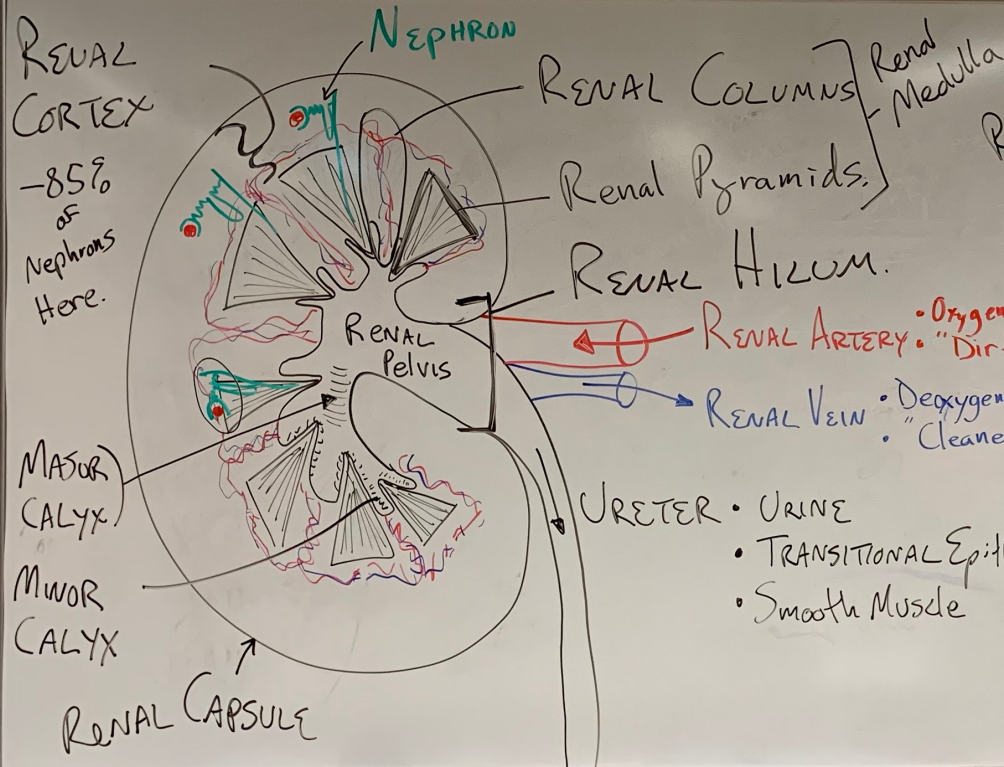 NEPHRON
RENAL
CORTEX
-85%
OF
Nephrons
Here.
RENAL COLUMNS
Renal Pyramids.
Renal
Medulla
RENAL HILUM.
RENAL
Pelvis
RENAL ARTERY
• Oxygen
• "Dir
RENAL VEIN
• Deoxygen
• "Cleane
MAJOR
CALYX
MINOR
CALYX
URETER • URINE
• TRANSITIONAL Epit
• Smooth Muscle
RENAL CAPSULE
R